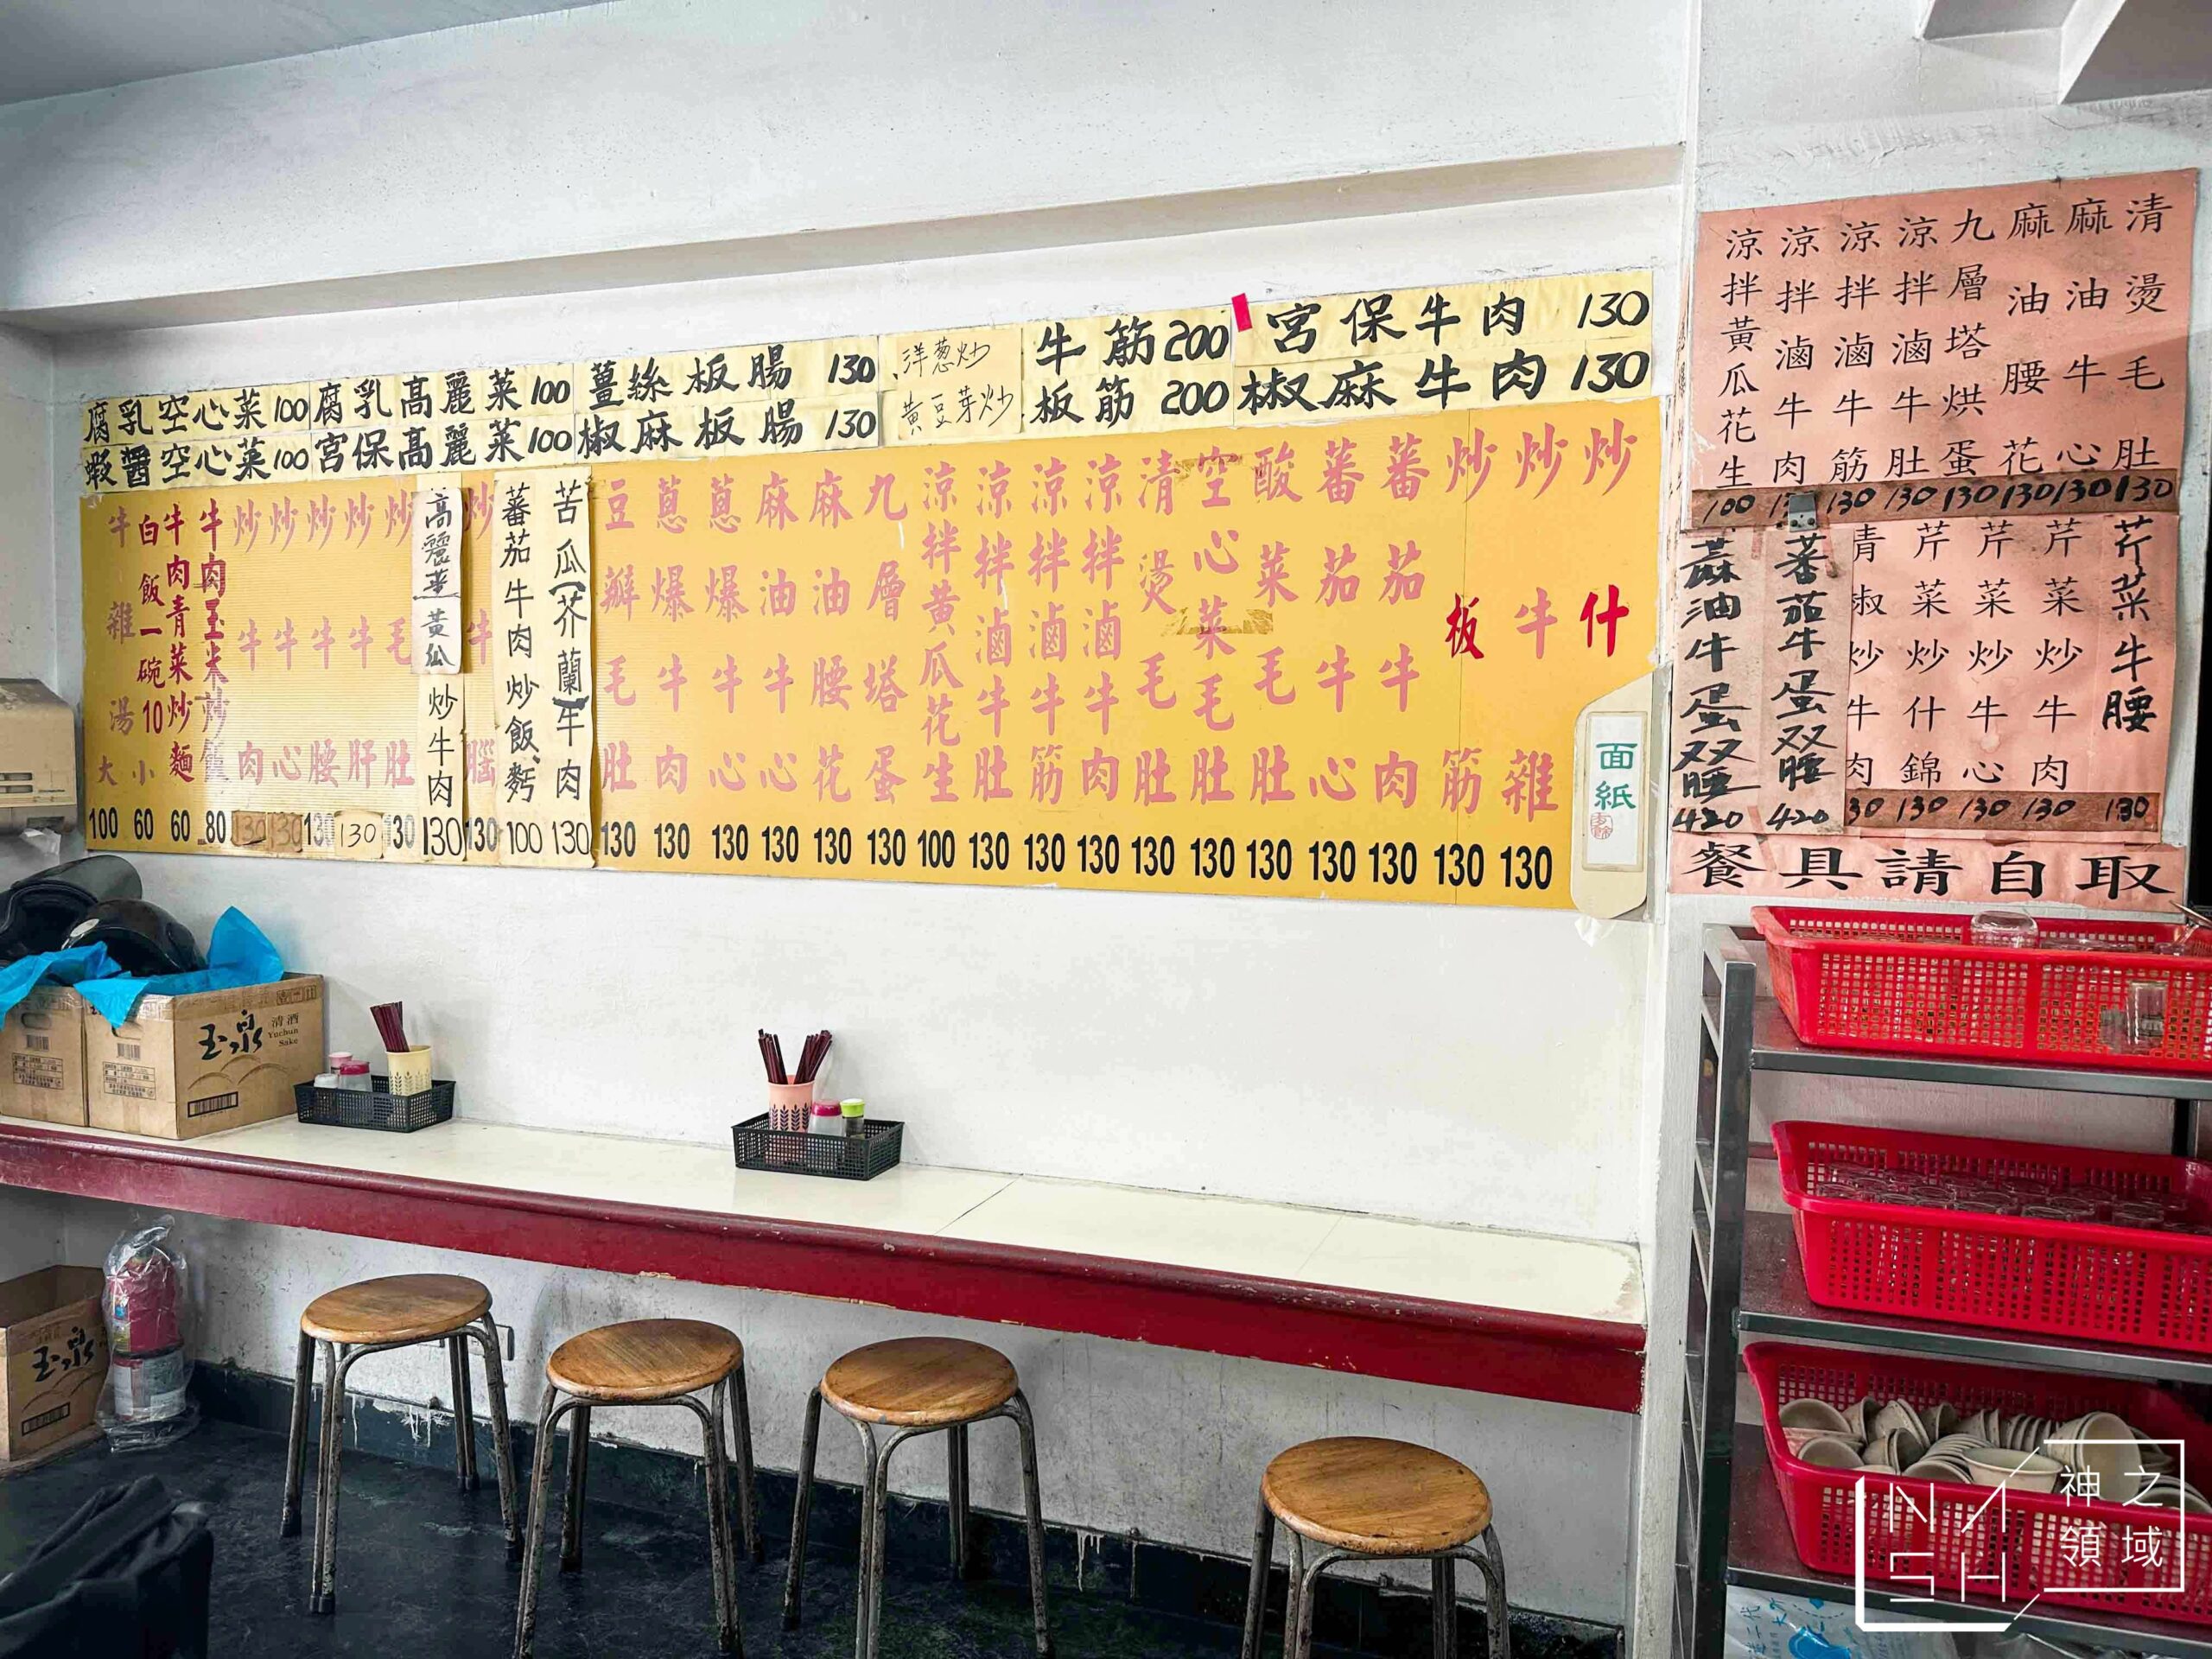 腐乳空心菜100
腐乳高麗菜100
薑絲板腸 130
洋葱炒
牛筋200
宮保牛肉 130
蝦醬空心菜100
宮保高麗菜100
椒麻板腸 130
黃豆芽炒
板筋 200
椒麻牛肉 130
炒什
炒牛雜 130
炒板筋 130
蕃茄牛肉 130
蕃茄牛心 130
酸菜毛肚 130
空心菜毛肚 130
清燙毛肚 130
涼拌滷牛肉 130
涼拌滷牛筋 130
涼拌滷牛肚 130
涼拌黃瓜花生 100
九層塔蛋 130
麻油腰花 130
麻油牛心 130
蔥爆牛心 130
蔥爆牛肉 130
豆瓣毛肚 130
苦瓜(芥蘭)牛肉 130
蕃茄牛肉炒飯、麪 100
炒牛腦 130
高麗菜 黃瓜 炒牛肉 130
炒毛肚 130
炒牛肝 130
炒牛腰 130
炒牛心 130
炒牛肉 130
牛肉玉米炒飯 80
牛肉青菜炒麵 60
白飯一碗10
牛雜湯 大 100
小 60
面紙
清燙毛肚 130
麻油牛心 130
麻油腰花 130
九層塔烘蛋 130
涼拌滷牛肚 130
涼拌滷牛筋 130
涼拌滷牛肉
涼拌黃瓜花生 100
芹菜牛腰 130
芹菜炒牛肉 130
芹菜炒牛心 130
芹菜炒什錦 130
青椒炒牛肉 130
蕃茄牛蛋双腰 420
麻油牛蛋双腰 420
餐具請自取
玉泉
清酒
Yuchun
Sake
玉泉
NASH
神之
領域